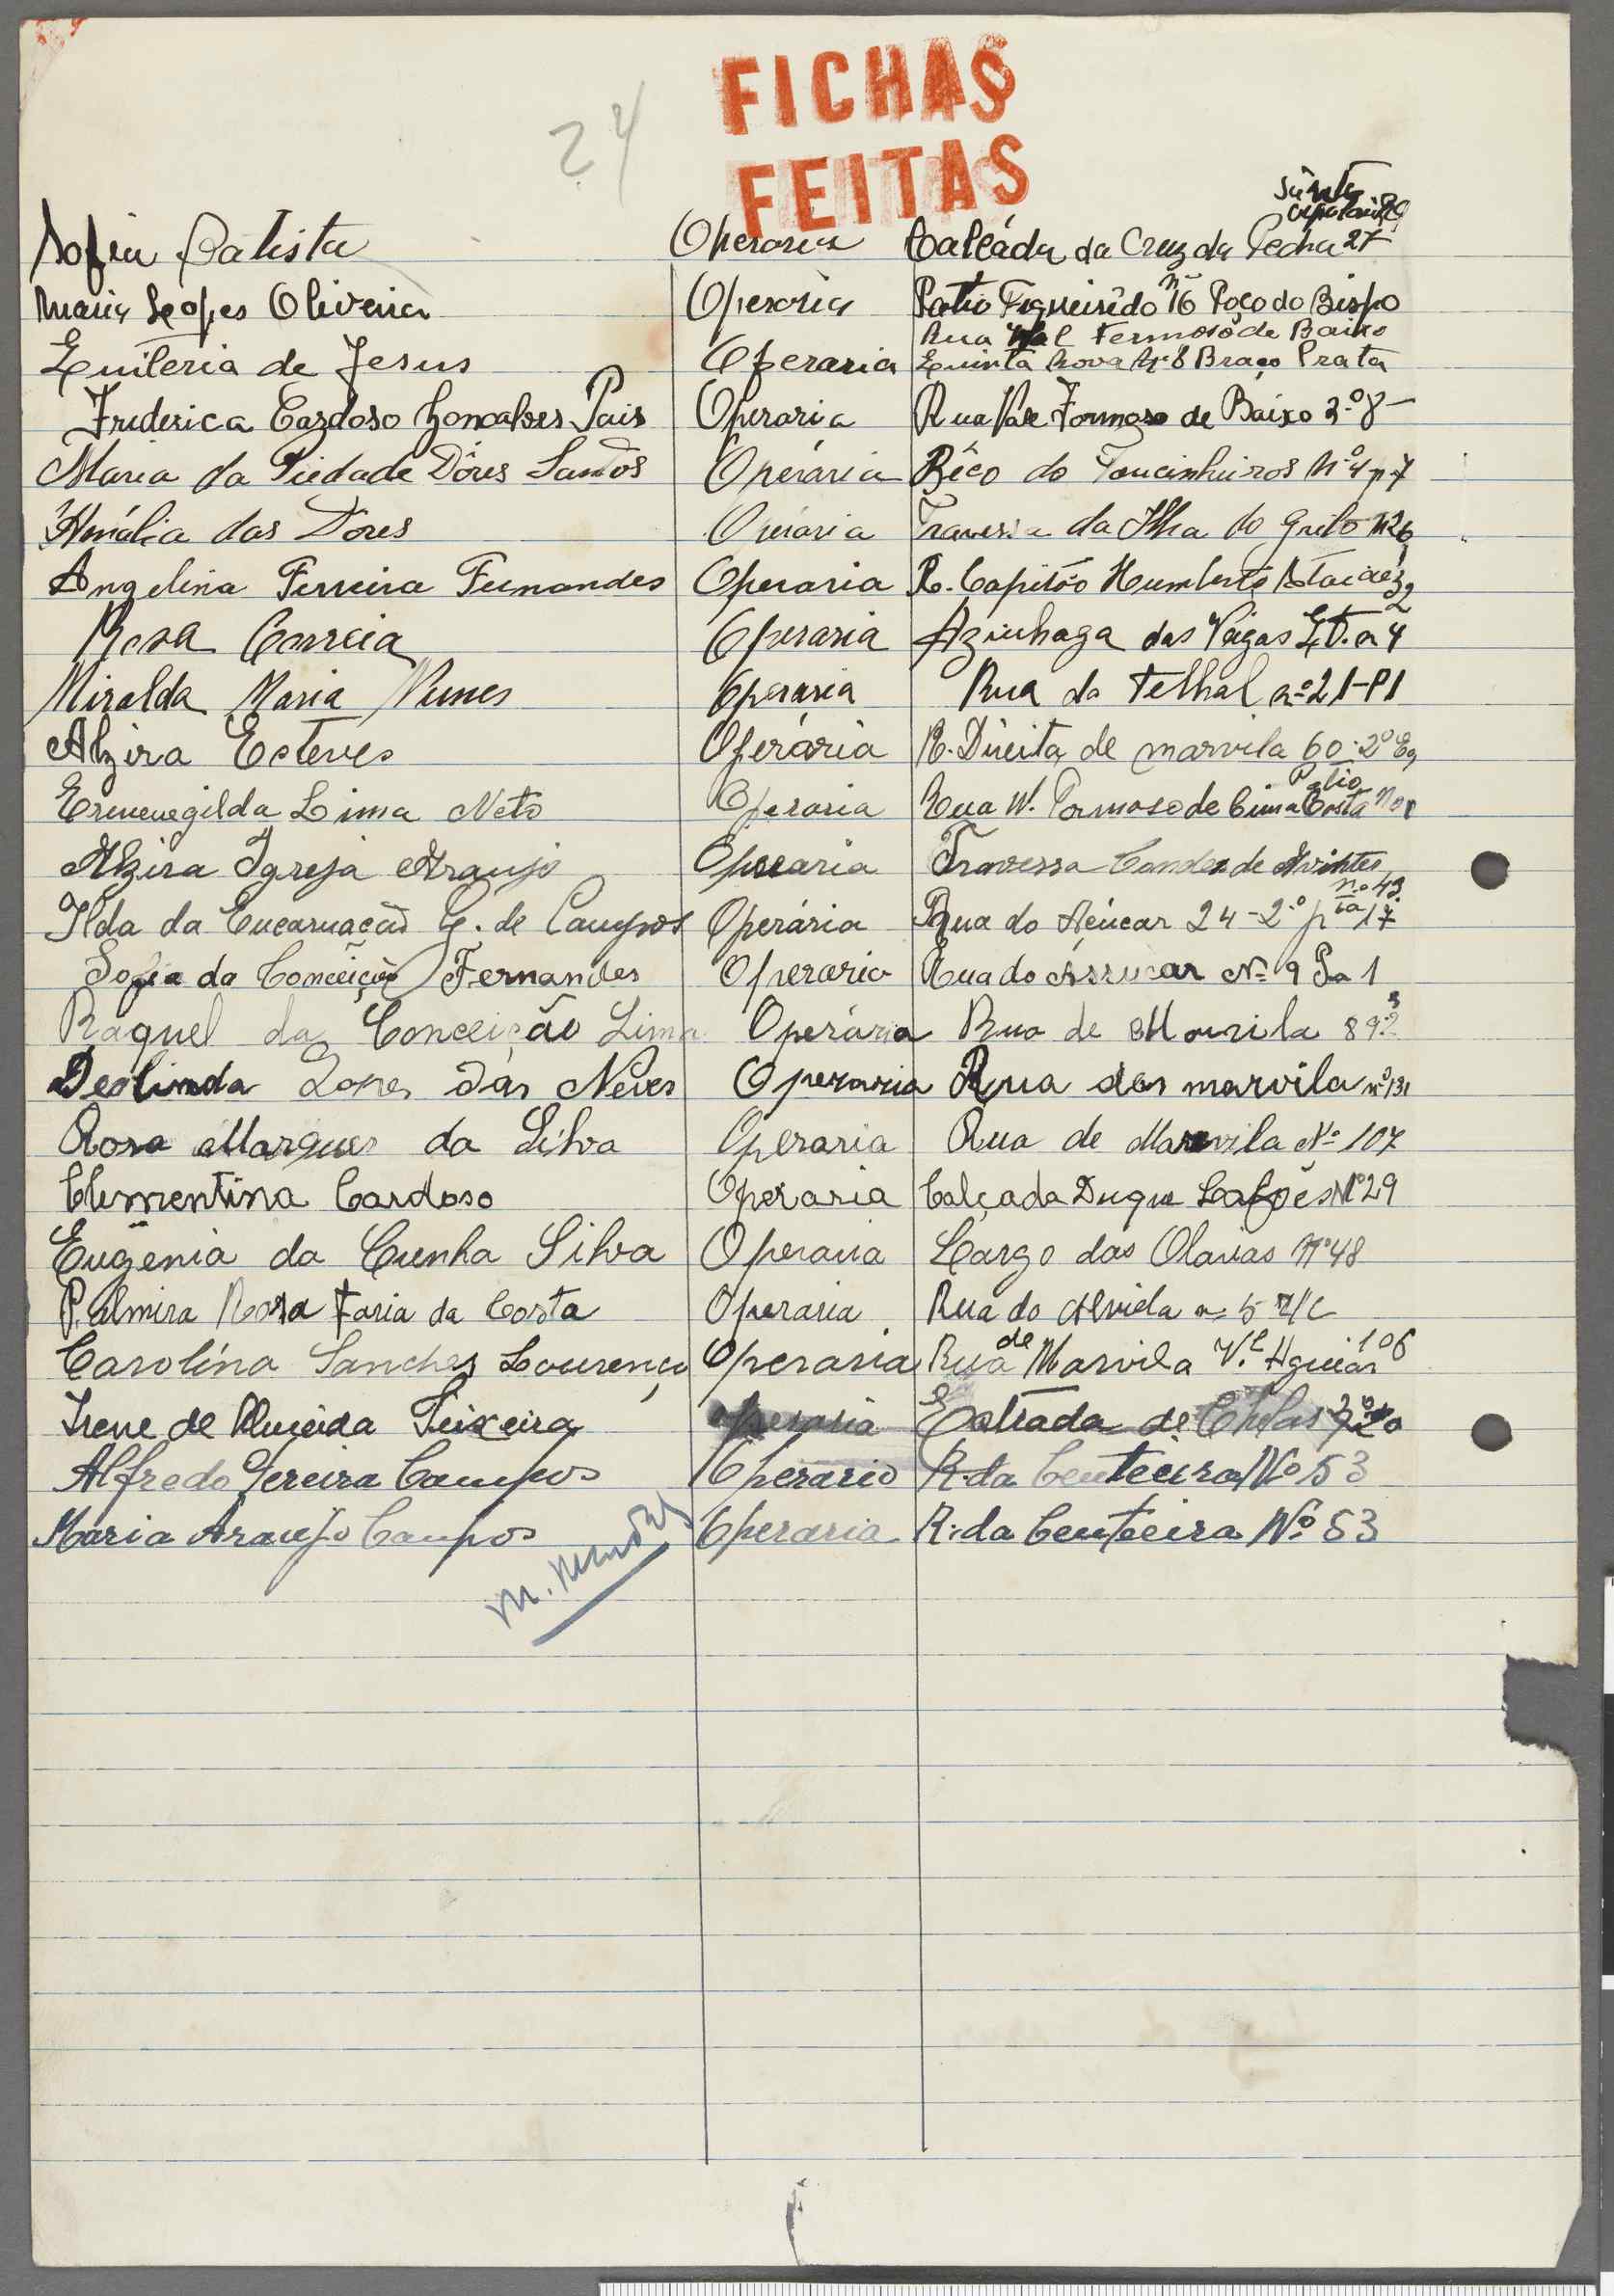 FICHAS
FEITAS
24
Sofia Batista Operaria Calcáda da Cruz da Pedra 27
Maria Lopes Oliveira Operaria Patio Figueirêdo nº 16 Poço do Bispo
Rua Val Fermoso de Baixo
Quiteria de Jesus Operaria Quinta Nova Nº 8 Braço Prata
Frederica Cardoso Gonçalves Pais Operaria Rua Vale Formoso de Baixo 2.º 8
Maria da Piedade Dôres Santos Operária Bêco do Toucinheiros Nº 4 p. 7
Amália das Dores Operária Travessa da Ilha do Grilo 26
Angelina Ferreira Fernandes Operaria R. Capitão Humberto Ataide
Rosa Correia Operaria Azinhaga das Veigas
Miralda Maria Nunes Operaria Rua do Telhal nº 21-P1
Alzira Esteves Operária R. Direita de marvila 60-2º Eq
Patio
Ermenegilda Lima Neto Operaria Rua W. Formoso de Cima Costa
Alzira Igreja Araujo Operaria Travessa Condes de Avintes
nº 43
Ilda da Encarnação G. de Campos Operária Rua do Açúcar 24-2.º pta 17
Sofia da Conceição Fernandes Operario Rua do Assucar Nº 9 Pa 1
Raquel da Conceição Lima Operária Rua de Marvila 89
Deolinda Lopes das Neves Operaria Rua das marvila nº 131
Rosa Marques da Silva Operaria Rua de Marvila Nº 107
Clementina Cardoso Operaria Calçada Duque Lafões Nº 29
Eugenia da Cunha Silva Operaria Largo das Olaias Nº 48
Palmira Rosa Faria da Costa Operaria Rua do Alviela nº 5 R/C
Carolina Sanches Lourenço Operaria Rua de Marvila V.ª Aguiar 106
Irene de Almeida Teixeira operaria Estrada de Chelas
Alfredo Pereira Campos Operario R. da Centieira Nº 53
Maria Araujo Campos Operaria R. da Centieira Nº 53